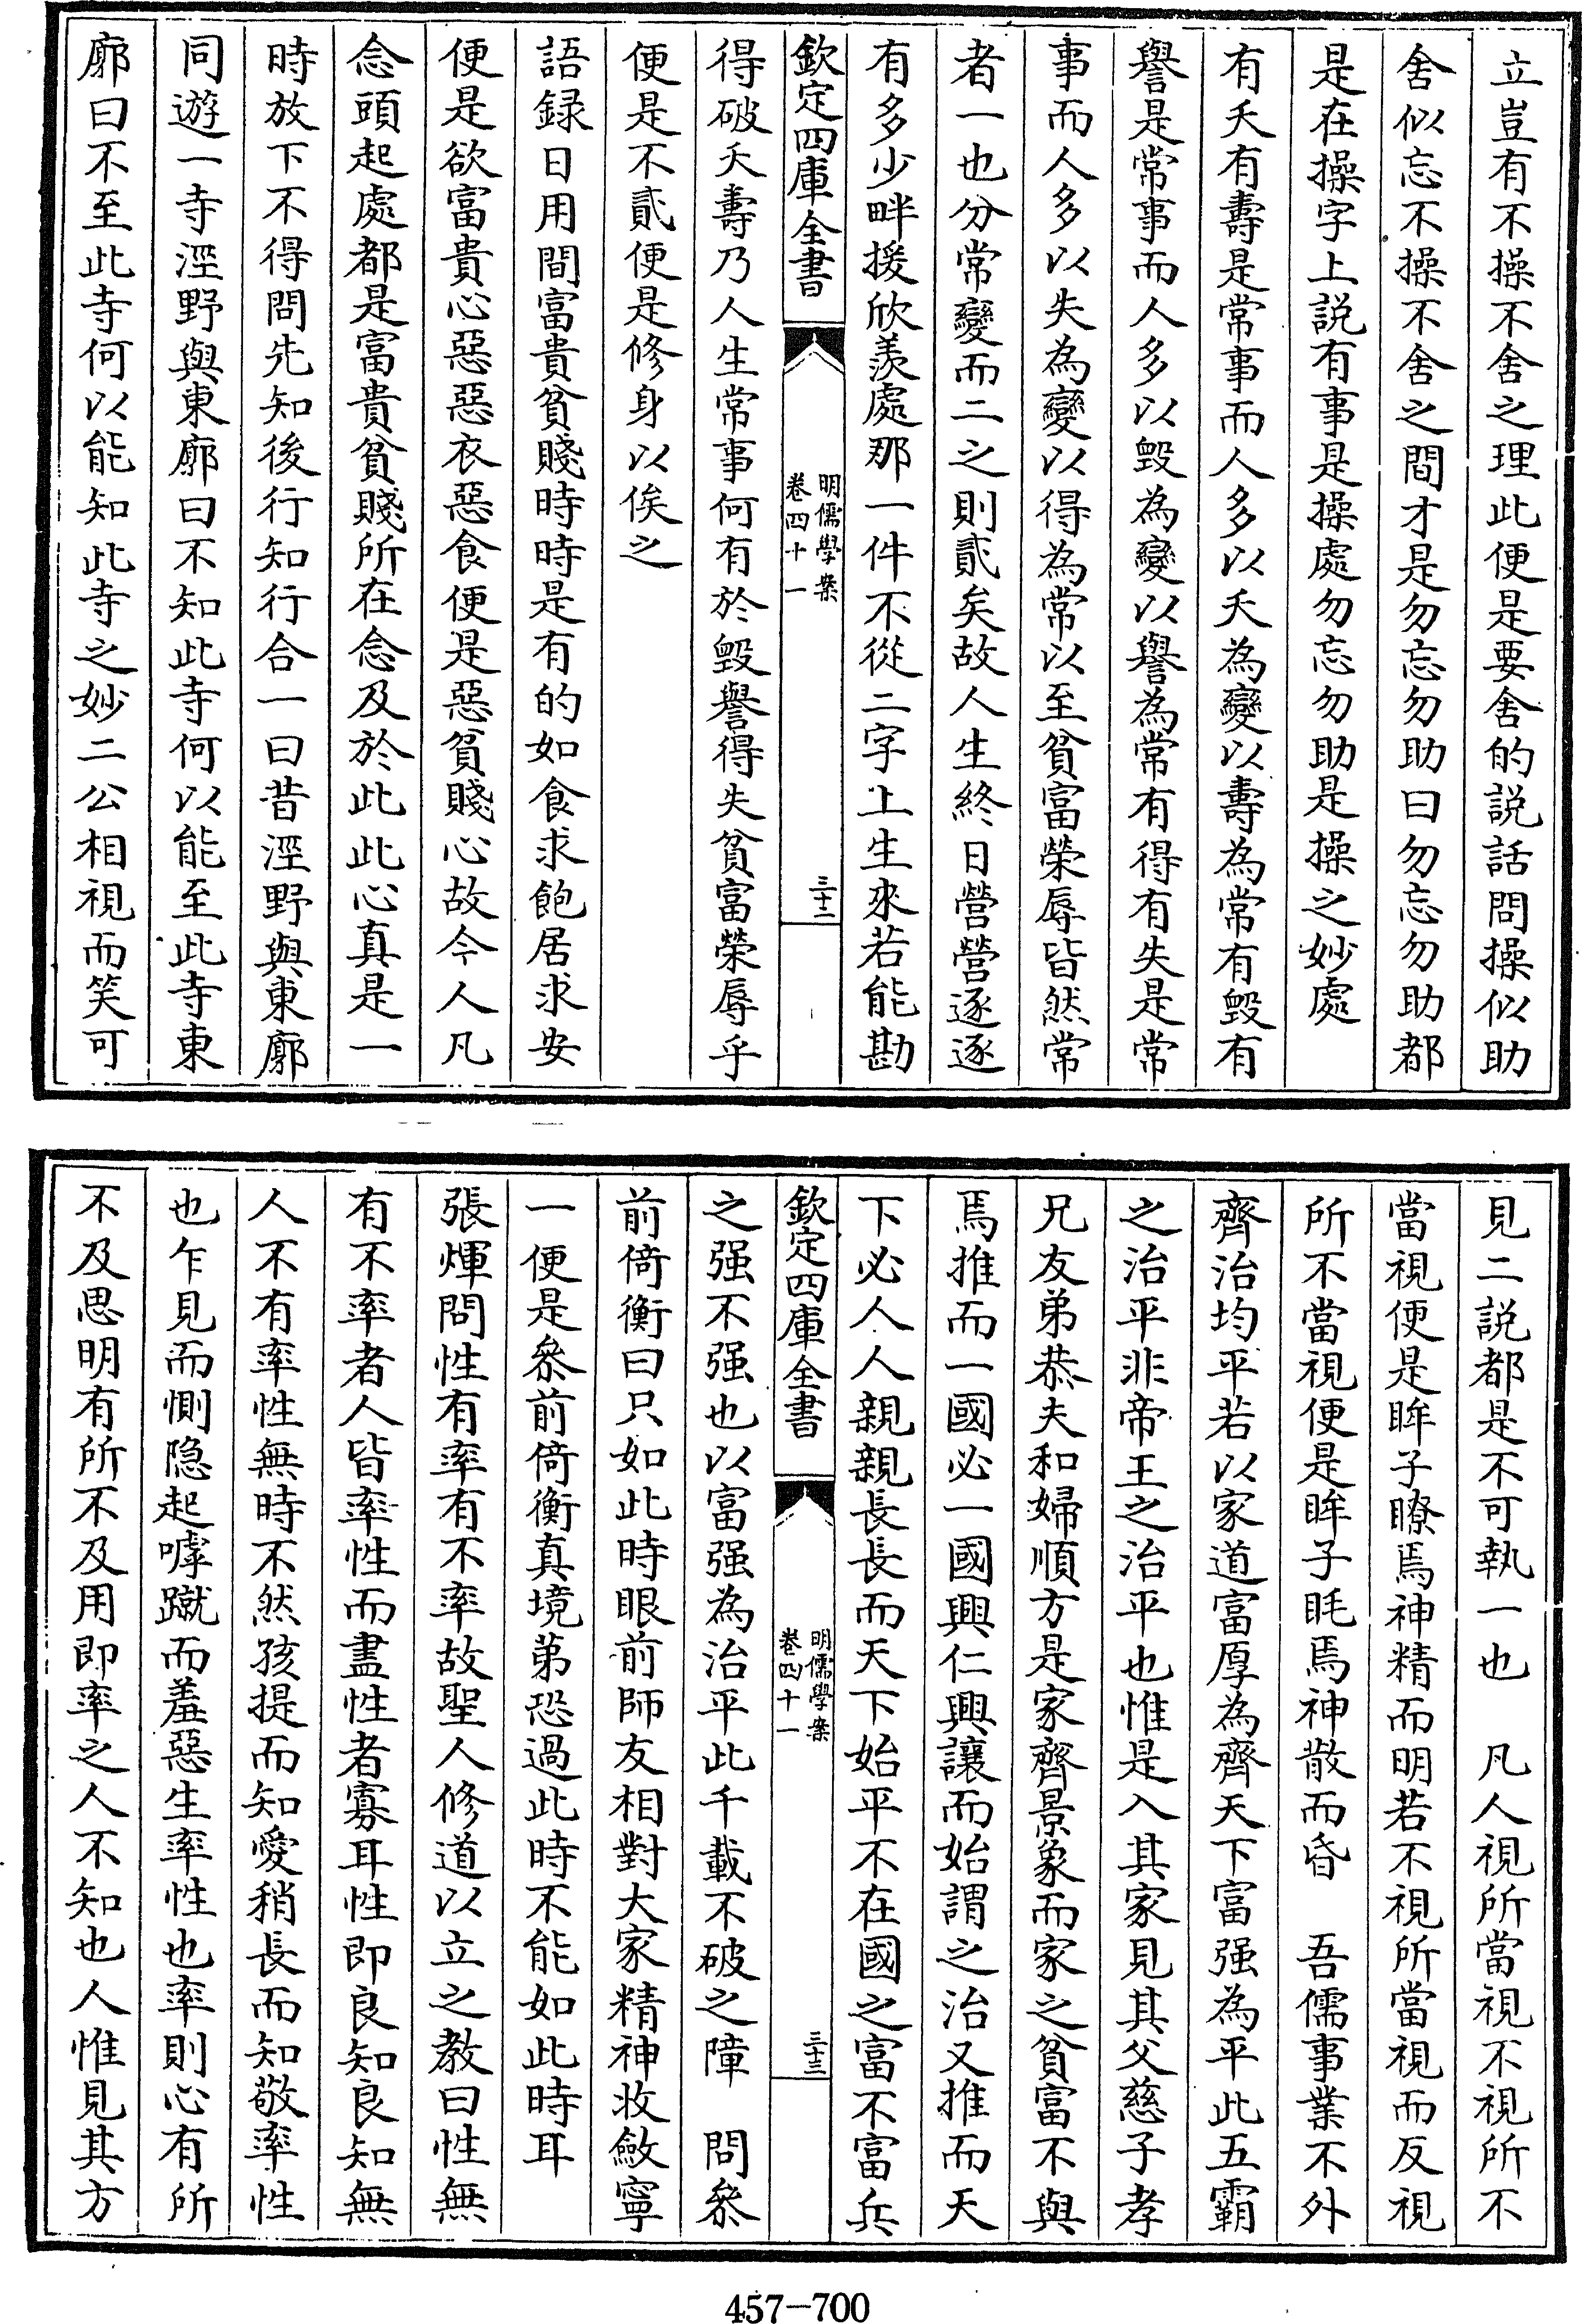 立豈有不操不舍之理此便是要舍的説話問操似助
舍似忘不操不舍之間才是勿忘勿助曰勿忘勿助都
是在操字上説有事是操處勿忘勿助是操之妙處
有夭有壽是常事而人多以夭為變以壽為常有毁有
譽是常事而人多以毁為變以譽為常有得有失是常
事而人多以失為變以得為常以至貧富榮辱皆然常
者一也分常變而二之則貳矣故人生終日營營逐逐
有多少畔援欣羨處那一件不從二字上生來若能勘
欽定四庫全書
明儒學案
卷四十一
三十二
得破夭壽乃人生常事何有於毁譽得失貧富榮辱乎
便是不貳便是修身以俟之
語録日用間富貴貧賤時時是有的如食求飽居求安
便是欲富貴心惡惡衣惡食便是惡貧賤心故今人凡
念頭起處都是富貴貧賤所在念及於此此心真是一
時放下不得問先知後行知行合一曰昔涇野與東廓
同遊一寺涇野與東廓曰不知此寺何以能至此寺東
廓曰不至此寺何以能知此寺之妙二公相視而笑可
見二説都是不可執一也　凡人視所當視不視所不
當視便是眸子瞭焉神精而明若不視所當視而反視
所不當視便是眸子眊焉神散而昏　吾儒事業不外
齊治均平若以家道富厚為齊天下富强為平此五霸
之治平非帝王之治平也惟是入其家見其父慈子孝
兄友弟恭夫和婦順方是家齊景象而家之貧富不與
焉推而一國必一國興仁興讓而始謂之治又推而天
下必人人親親長長而天下始平不在國之富不富兵
欽定四庫全書
明儒學案
卷四十一
三十三
之强不强也以富强為治平此千載不破之障　問叅
前倚衡曰只如此時眼前師友相對大家精神收斂寧
一便是叅前倚衡真境第恐過此時不能如此時耳
張煇問性有率有不率故聖人修道以立之教曰性無
有不率者人皆率性而盡性者寡耳性即良知良知無
人不有率性無時不然孩提而知愛稍長而知敬率性
也乍見而惻隐起嘑蹴而羞惡生率性也率則心有所
不及思明有所不及用即率之人不知也人惟見其方
457-700